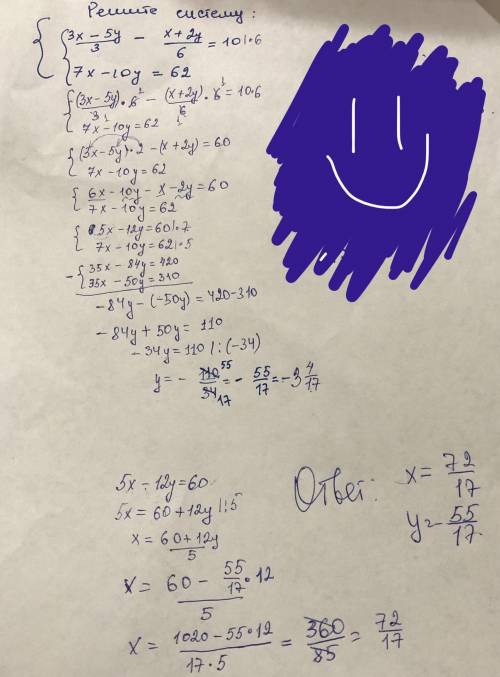 Решите систему:
{ { (3x - 5y)/3 - (x + 2y)/6 = 10 |·6
7x - 10y = 62
{ (3x - 5y)/3 · 6 - (x + 2y)/6 · 6 = 10·6
7x - 10y = 62
{ (3x - 5y)·2 - (x + 2y) = 60
7x - 10y = 62
{ 6x - 10y - x - 2y = 60
7x - 10y = 62
{ 5x - 12y = 60 |·7
7x - 10y = 62 |·5
- { 35x - 84y = 420
35x - 50y = 310
-84y - (-50y) = 420-310
-84y + 50y = 110
-34y = 110 |:(-34)
y = - 110/34 = - 55/17 = -3 4/17
5x - 12y = 60
5x = 60 + 12y |:5
x = (60 + 12y)/5
x = (60 - 55/17 · 12)/5
x = (1020 - 55·12)/(17·5) = 360/85 = 72/17
Ответ: x = 72/17
y = 55/17.